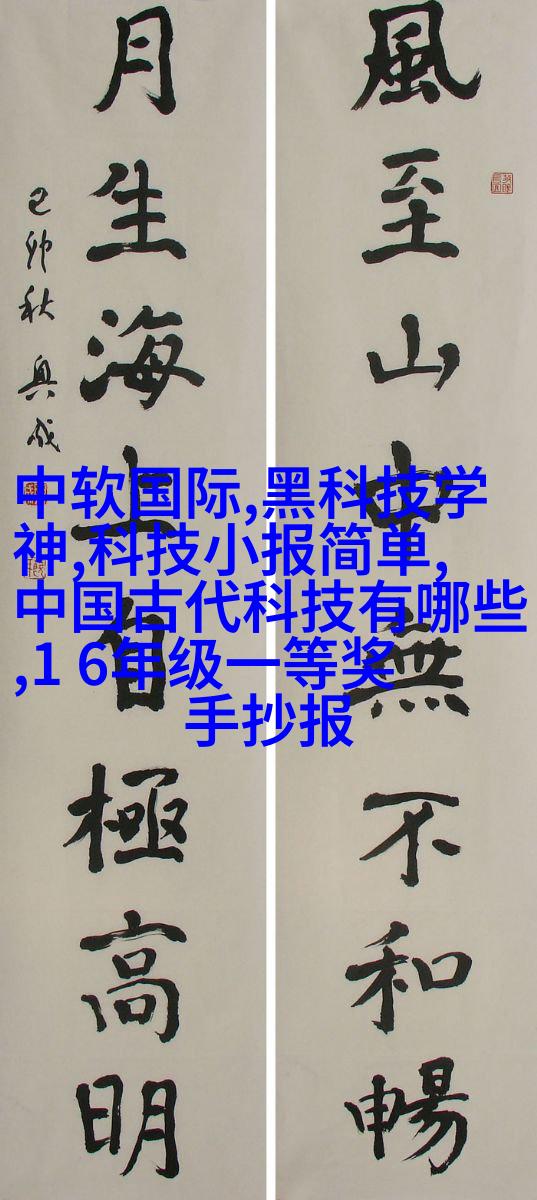 風至山中無不和暢
月生海上自極高明
己卯秋 興成
中软国际,黑科技学
神,科技小报简单,
中国古代科技有哪些
,1 6年级一等奖
手抄报